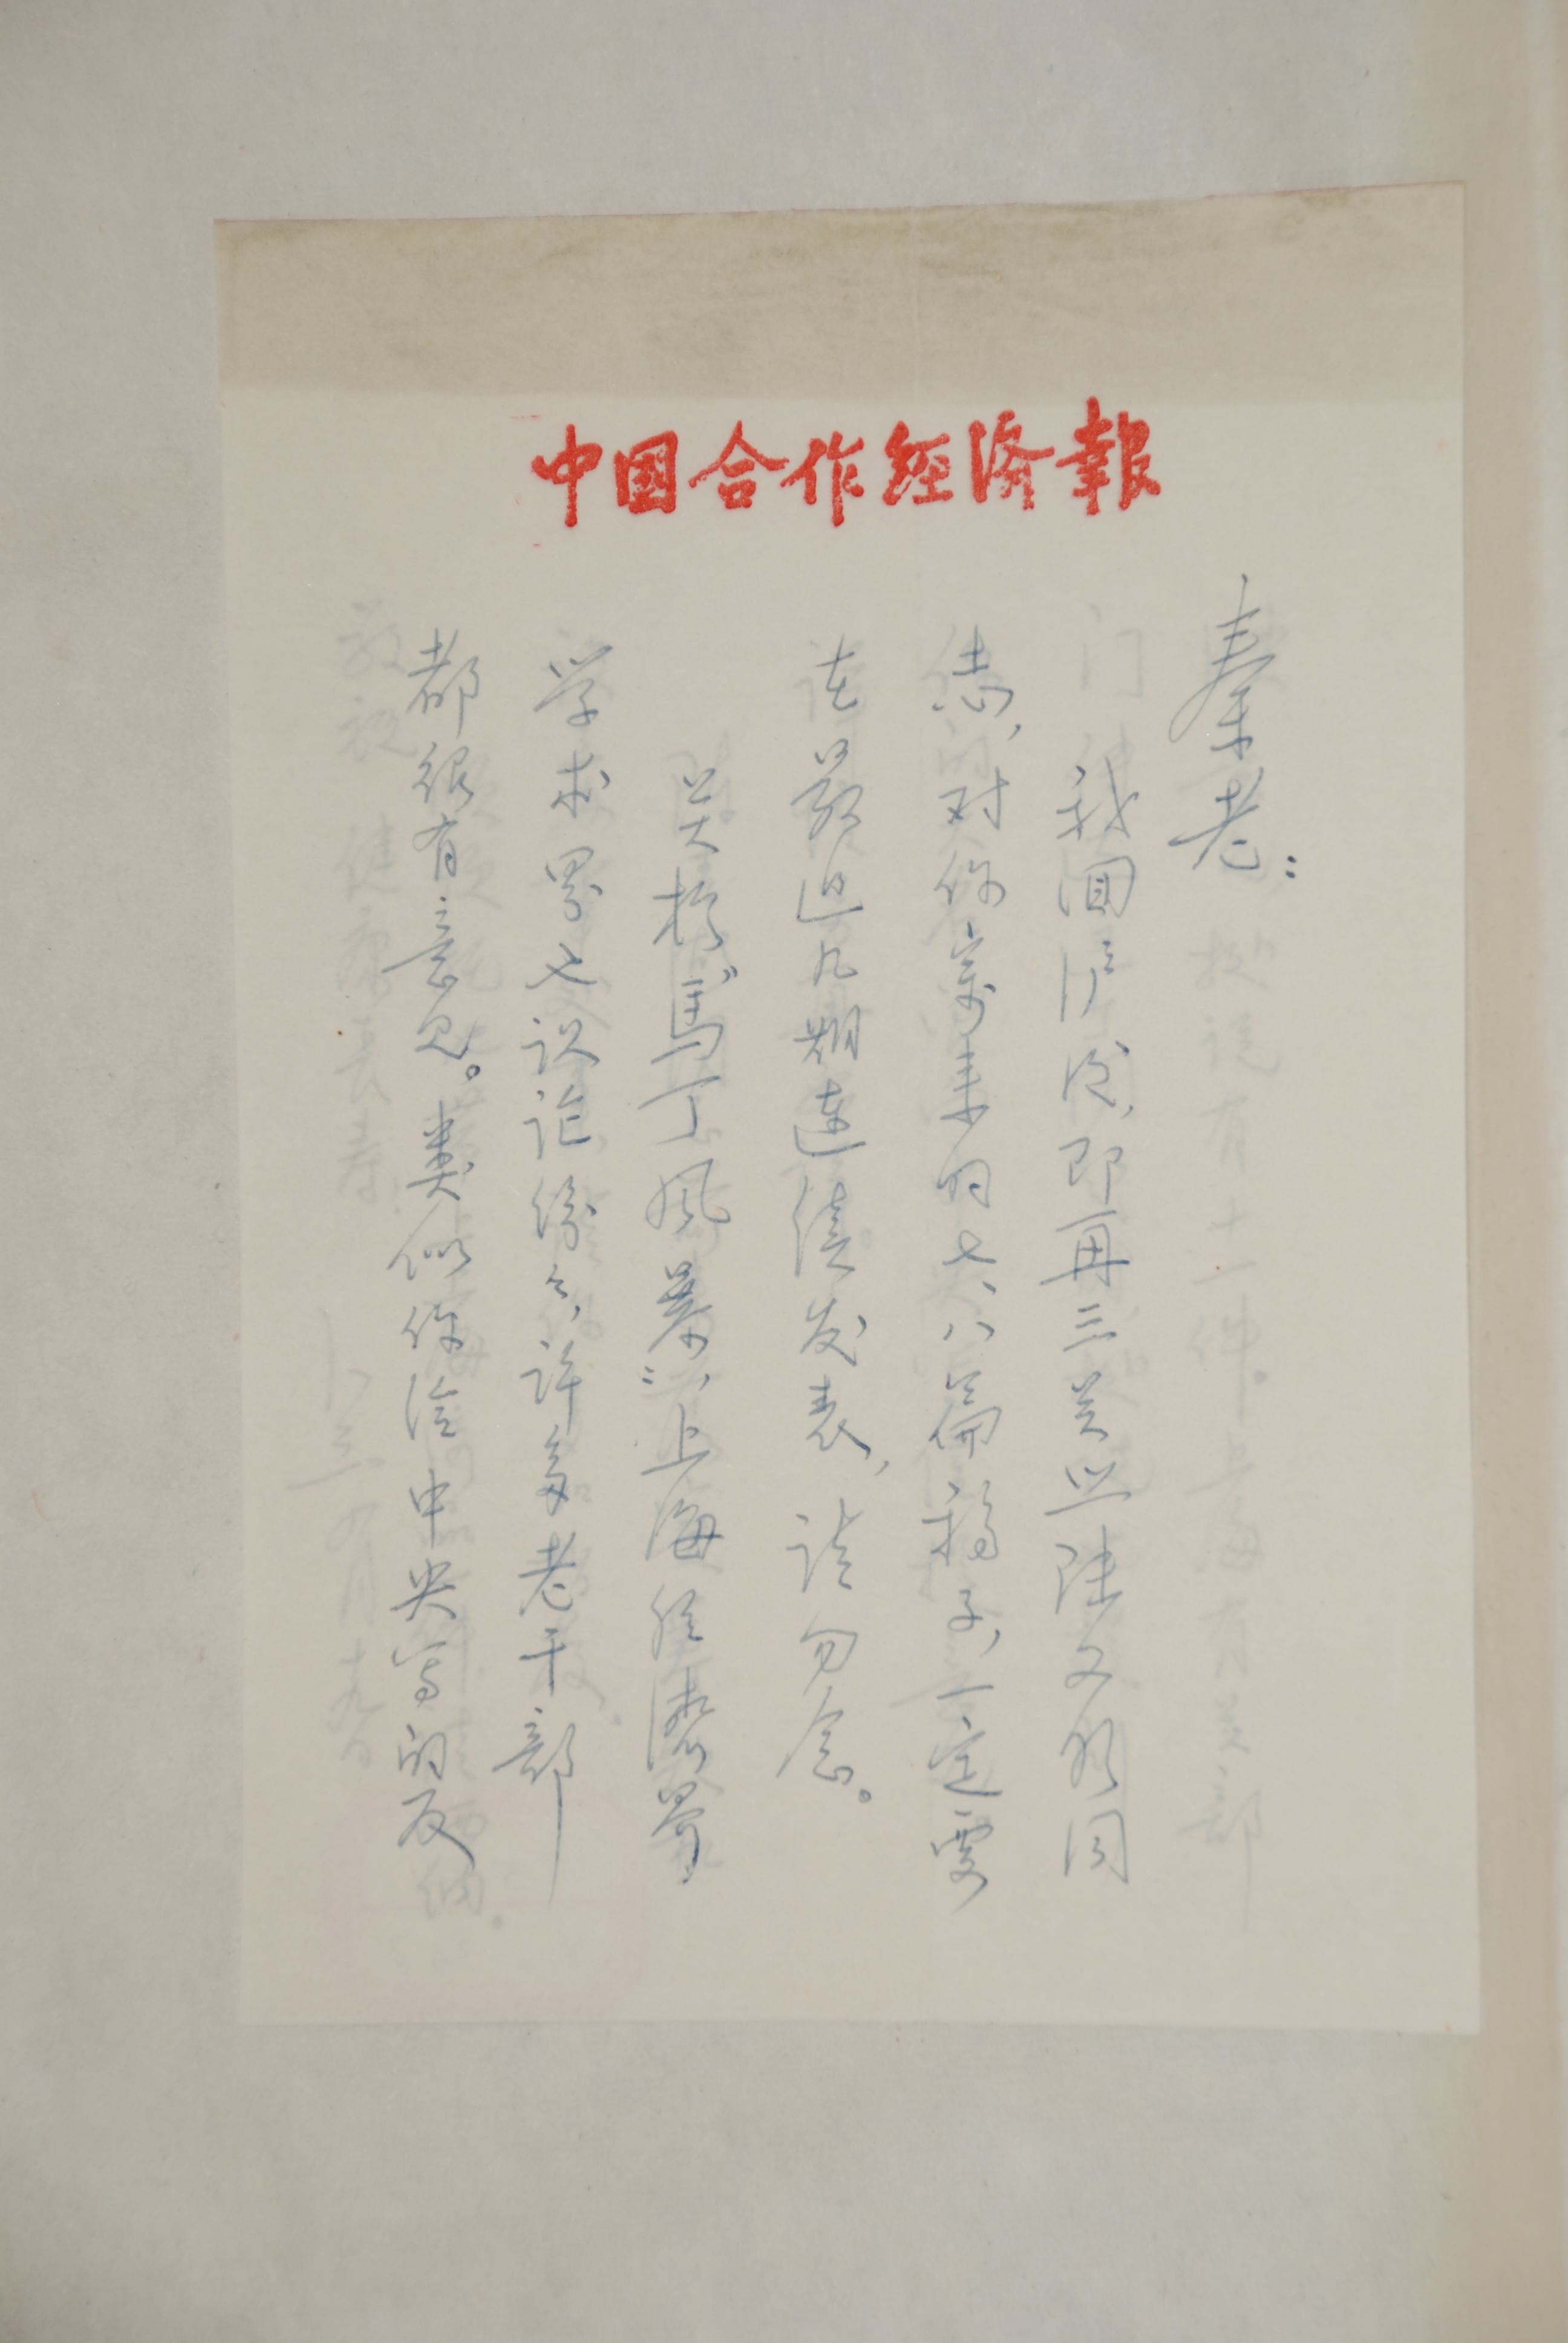 中国合作經濟報
秦老：
我回沪后，即再三关照陆文彬同
志，对你寄来的七、八篇稿子，一定要
在最近几期连续发表，请勿念。
关于“馬丁风暴”，上海经济界
学术界也议论纷纷，许多老干部
都很有意见。类似你给中央写的反